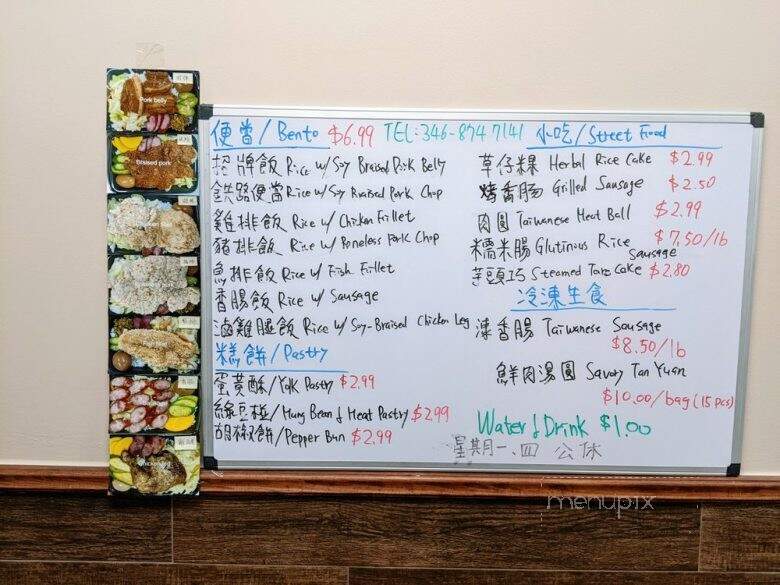 便當/Bento $6.99 TEL:346-874 7141
招牌飯 Rice w/ Soy Braised Pork Belly
鉄路便當 Rice w/ Soy Braised Pork Chop
雞排飯 Rice w/ Chicken Fillet
豬排飯 Rice w/ Boneless Pork Chop
魚排飯 Rice w/ Fish Fillet
香腸飯 Rice w/ Sausage
滷雞腿飯 Rice w/ Soy-Braised Chicken Leg
糕餅/Pastry
蛋黃酥/Yolk Pastry $2.99
綠豆椪/Mung Bean & Meat Pastry $2.99
胡椒餅/Pepper Bun $2.99
小吃/Street Food
草仔粿 Herbal Rice Cake $2.99
烤香腸 Grilled Sausage $2.50
肉圓 Taiwanese Meat Ball $2.99
糯米腸 Glutinous Rice Sausage $7.50/lb
芋頭巧 Steamed Taro Cake $2.80
冷凍生食
凍香腸 Taiwanese Sausage
$8.50/lb
鮮肉湯圓 Savory Tan Yuan
$10.00/bag (15 pcs)
Water & Drink $1.00
星期一、四 公休
Pork belly
Braised pork
menupix